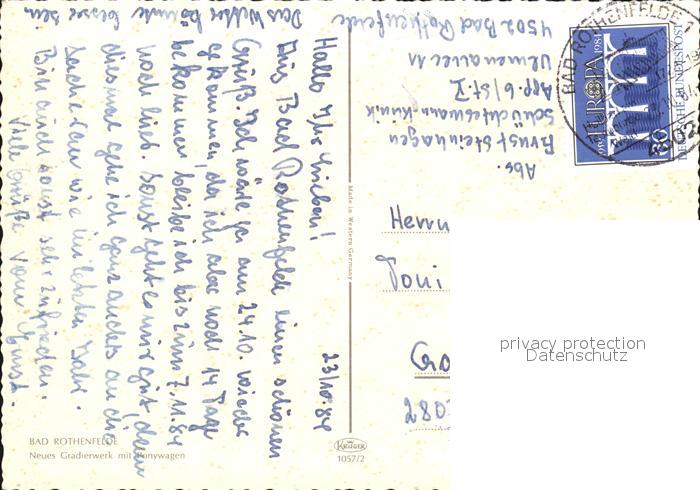 23/10.84
Hallo Ihr Lieben!
Aus Bad Rothenfelde einen schönen
Gruß. Ich wäre ja am 24.10. wieder
gekommen, da ich aber noch 14 Tage
bekommen bleibe ich bis zum 7.11.84
noch hier. Sonst geht es mir gut, denn
diesmal gehe ich ganz anders an die
Sache ran wie im letzten Jahr.
Bin auch sonst sehr zufrieden.
Viele Grüße vom Ernst.
Das Wetter könnte besser sein
Abs.
Ernst Steinhagen
Schüchtermann Klinik
App. 6/St. I
Ulmenallee 11
4502 Bad Rothenfelde
BAD ROTHENFELDE
EUROPA
1984
80
DEUTSCHE BUNDESPOST
Herrn
Toni
280
privacy protection
Datenschutz
Made in Western Germany
BAD ROTHENFELDE
Neues Gradierwerk mit Ponywagen
KRÜGER
1057/2